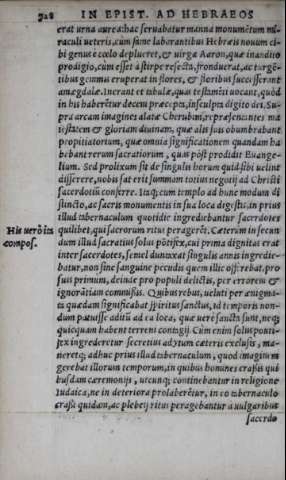 728 IN EPIST. AD HEBRAEOS
erat urna aurea: hac seruabatur manna monumētum mi-
raculi ueteris, cùm fame laborantibus Hebræis nouum ci-
bi genus è cœlo deplueret, & uirga Aaron, quæ inaudito
prodigio, cùm esset à stirpe resecta, fronduerat, ac turgē-
tibus gemmis eruperat in flores, & floribus successerant
amygdalæ. Inerant et tabulæ, quas testamēti uocant, quòd
in his haberētur decem præcepta, insculpta digito dei. Su-
pra arcam imagines alatæ Cherubim, repræsentantes ma
iestatem & gloriam diuinam, quæ alis suis obumbrabant
propitiatorium, quæ omnia significationem quandam ha
bebant rerum sacratiorum, quas pòst prodidit Euange-
lium. Sed prolixum sit de singulis horum quid sibi uelint
disserere, nobis sat erit summam totius negotij ad Christi
sacerdotiū conferre. Itaq; cum templo ad hunc modum di
stincto, ac sacris monumentis in sua loca digestis, in prius
illud tabernaculum quotidie ingrediebantur sacerdotes
His uerò ita
compos.
quilibet, qui sacrorum ritus peragerēt. Cæterùm in secun
dum illud sacratius solus pōtifex, cui prima dignitas erat
inter sacerdotes, semel duntaxat singulis annis ingredie-
batur, non sine sanguine pecudis quem illic offerebat, pro
suis primum, deinde pro populi delictis, per errorem &
ignorātiam commissis. Quibus rebus, ueluti per ænigma-
ta quædam significabat spiritus sanctus, id temporis non-
dum patuisse aditū ad ea loca, quæ uerè sancta sunt, neq;
quicquam habent terreni contagij. Cùm enim solus ponti-
fex ingrederetur secretius adytum cæteris exclusis, ma-
neretq; adhuc prius illud tabernaculum, quod imaginem
gerebat illorum temporum, in quibus homines crassis qui
busdam cæremonijs, utcunq; continebantur in religione
Iudaica, ne in deteriora prolaberētur, in eo tabernaculo
crassi quidam, ac plebeij ritus peragebantur à uulgaribus
sacerdo